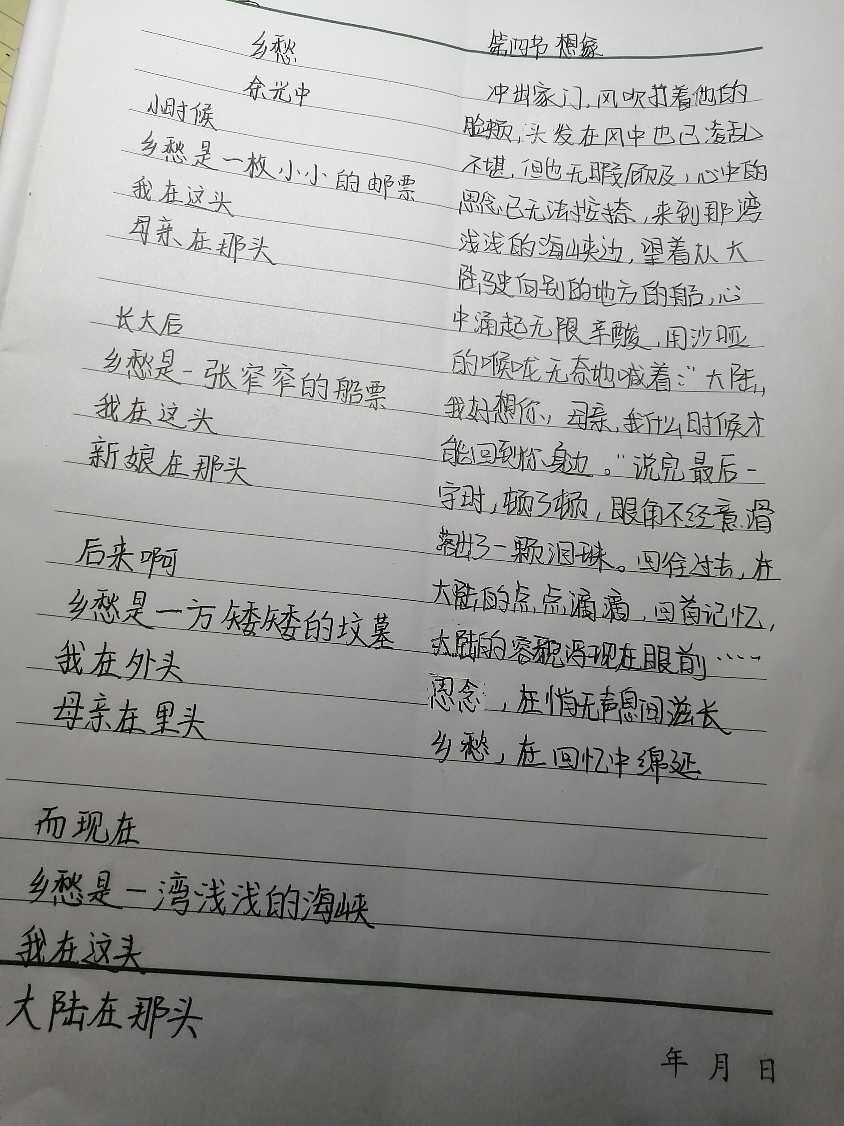 乡愁
余光中
小时候
乡愁是一枚小小的邮票
我在这头
母亲在那头
长大后
乡愁是一张窄窄的船票
我在这头
新娘在那头
后来啊
乡愁是一方矮矮的坟墓
我在外头
母亲在里头
而现在
乡愁是一湾浅浅的海峡
我在这头
大陆在那头
第四节 想象
冲出家门，风吹打着他的
脸颊，头发在风中也已凌乱
不堪，但也无暇顾及，心中的
思念已无法按捺，来到那湾
浅浅的海峡边，望着从大
陆驶向别的地方的船，心
中涌起无限辛酸，用沙哑
的喉咙无奈地喊着：“大陆，
我好想你，母亲，我什么时候才
能回到你身边。”说完最后一
字时，顿了顿，眼角不经意滑
落出了一颗泪珠。回往过去，在
大陆的点点滴滴，回首记忆，
大陆的容貌浮现在眼前……
思念，在悄无声息回滋长
乡愁，在回忆中绵延
年 月 日